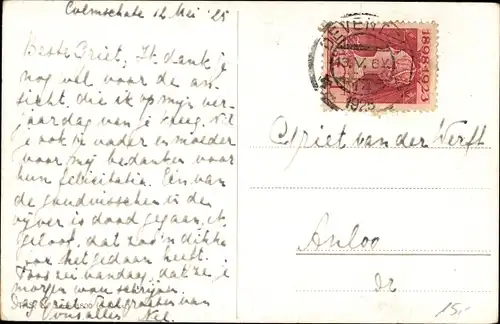 Colmschate 12 Mei '25
Beste Griet, Ik dank je
nog wel voor de an-
sicht, die ik op mijn ver-
jaardag van je kreeg. Wil
je ook je vader en moeder
voor mij bedanken voor
hun felicitatie. Een van
de goudvisschen in de
vijver is dood gegaan, ik
geloof, dat zoo'n dikke
het gedaan heeft.
Toos zei vandaag, dat ze je
morgen wou schrijven.
Dag Griet, veel groeten van
ons allen Nel.
DEVEN
13.V. 6V
1925
1898-1923
Griet van der Werft
Anloo
Dr
15,-